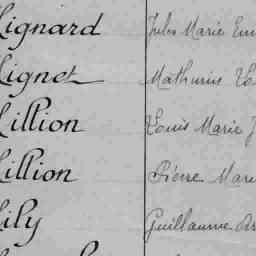 Lignard Jules Marie
Lignet Mathurin
Lillion Louis Marie J
Lillion Pierre Mari
Lily Guillaume